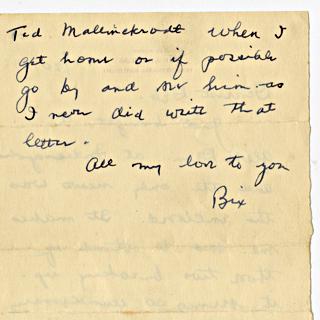 Ted Mallinckrodt when I
get home or if possible
go by and see him as
I never did write that
letter.
All my love to you
Bix